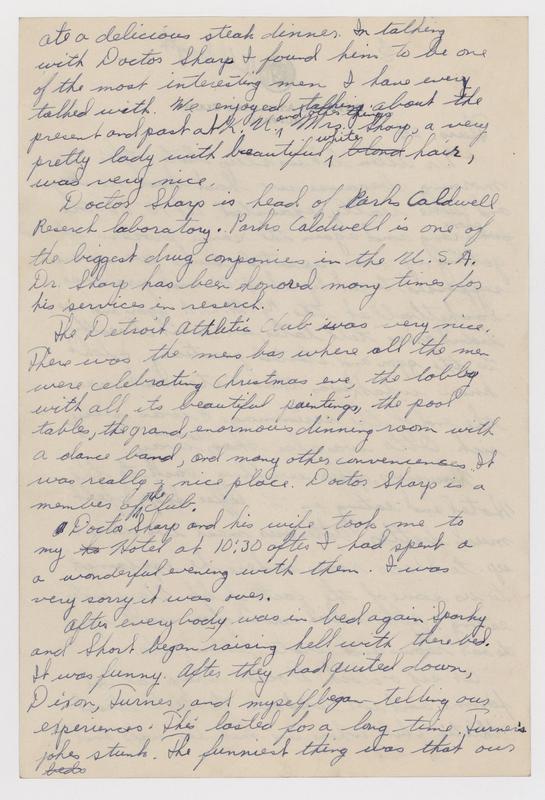 ate a delicious steak dinner. In talking
with Doctor Sharp I found him to be one
of the most interesting men I have every
talked with. We enjoyed talking about the
and other things
present and past at K. U. Mrs. Sharp, a very
white
pretty lady with beautiful blond hair,
was very nice.
Doctor Sharp is head of Parks Caldwell
Reserch laboratory. Parks Caldwell is one of
the biggest drug companies in the U. S. A.
Dr. Sharp has been honored many times for
his services in reserch.
The Detroit Athletic Club was very nice.
There was the mens bar where all the men
were celebrating Christmas eve, the lobby
with all its beautiful paintings, the pool
tables, the grand, enormous dinning room with
a dance band, and many other conveniences. It
was really a nice place. Doctor Sharp is a
the
member of Club.
Doctor Sharp and his wife took me to
my to Hotel at 10:30 after I had spent a
a wonderful evening with them. I was
very sorry it was over.
After everybody was in bed again Sparky
and Short began raising hell with there bed.
It was funny. After they had quited down,
Dixon, Turner, and myself began telling our
experiences. This lasted for a long time. Turner's
jokes stunk. The funniest thing was that our
beds